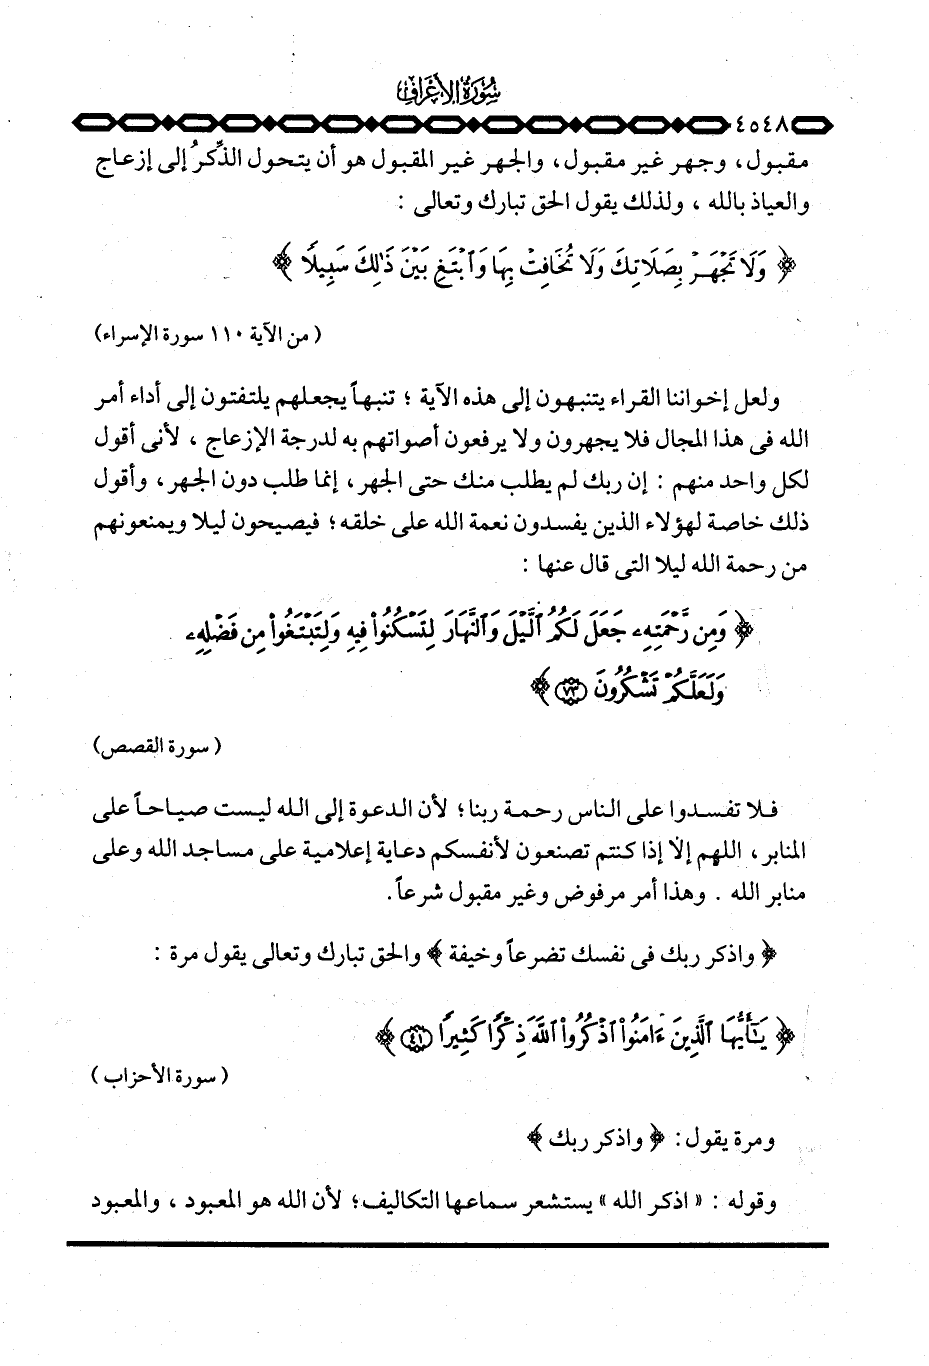 سُورَةُ الأَعْرَافِ
٤٥٤٨
مقبول ، وجهر غير مقبول ، والجهر غير المقبول هو أن يتحول الذِّكرُ إلى إزعاج
والعياذ بالله ، ولذلك يقول الحق تبارك وتعالى :
﴿ وَلَا تَجْهَرْ بِصَلَاتِكَ وَلَا تُخَافِتْ بِهَا وَٱبْتَغِ بَيْنَ ذَٰلِكَ سَبِيلًا ﴾
( من الآية ١١٠ سورة الإسراء)
ولعل إخواننا القراء يتنبهون إلى هذه الآية ؛ تنبهاً يجعلهم يلتفتون إلى أداء أمر
الله فى هذا المجال فلا يجهرون ولا يرفعون أصواتهم به لدرجة الإزعاج ، لأنى أقول
لكل واحد منهم : إن ربك لم يطلب منك حتى الجهر ، إنما طلب دون الجهر ، وأقول
ذلك خاصة لهؤلاء الذين يفسدون نعمة الله على خلقه ؛ فيصيحون ليلا ويمنعونهم
من رحمة الله ليلا التى قال عنها :
﴿ وَمِن رَّحْمَتِهِۦ جَعَلَ لَكُمُ ٱلَّيْلَ وَٱلنَّهَارَ لِتَسْكُنُوا۟ فِيهِ وَلِتَبْتَغُوا۟ مِن فَضْلِهِۦ
وَلَعَلَّكُمْ تَشْكُرُونَ ٧٣ ﴾
( سورة القصص)
فلا تفسدوا على الناس رحمة ربنا ؛ لأن الدعوة إلى الله ليست صياحاً على
المنابر ، اللهم إلّا إذا كنتم تصنعون لأنفسكم دعاية إعلامية على مساجد الله وعلى
منابر الله . وهذا أمر مرفوض وغير مقبول شرعاً .
﴿ واذكر ربك فى نفسك تضرعاً وخيفة ﴾ والحق تبارك وتعالى يقول مرة :
﴿ يَـٰٓأَيُّهَا ٱلَّذِينَ ءَامَنُوا۟ ٱذْكُرُوا۟ ٱللَّهَ ذِكْرًا كَثِيرًا ٤١ ﴾
( سورة الأحزاب )
ومرة يقول : ﴿ واذكر ربك ﴾
وقوله : « اذكر الله » يستشعر سماعها التكاليف ؛ لأن الله هو المعبود ، والمعبود